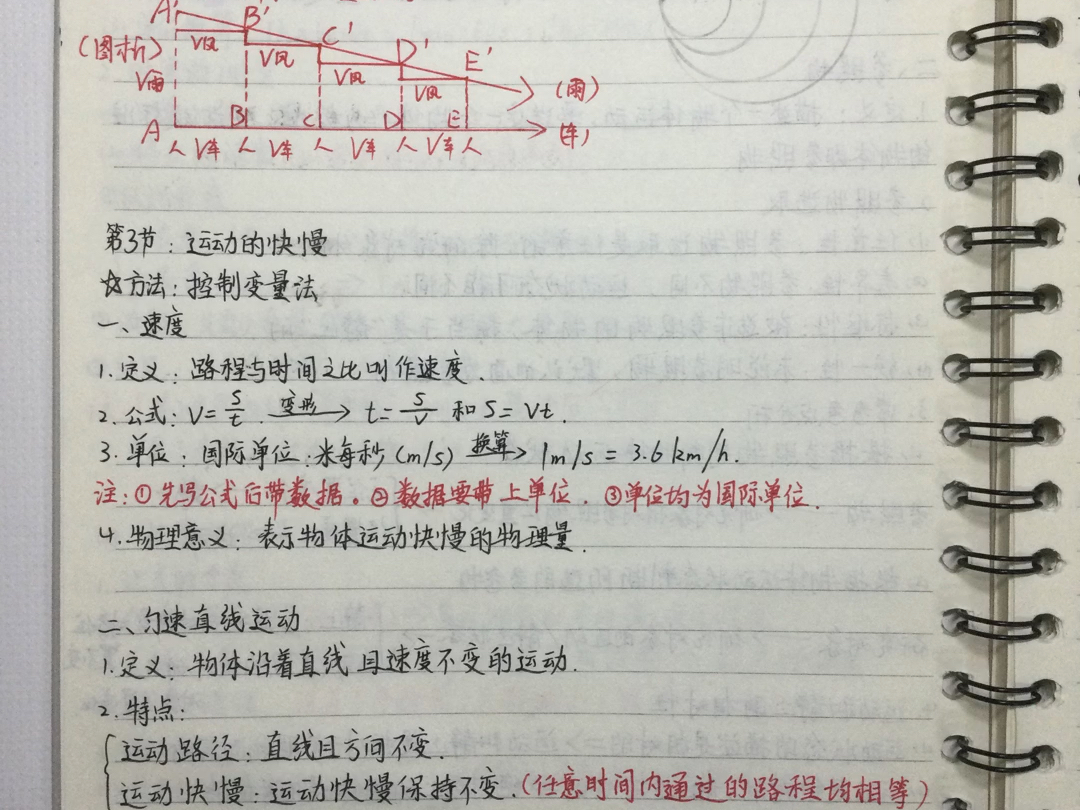 A' B' C' D' E'
(图析) V风 V风 V风 V风
V雨 (雨)
A B C D E (车)
人 V车 人 V车 人 V车 人 V车 人
第3节：运动的快慢
☆方法：控制变量法
一、速度
1.定义：路程与时间之比叫作速度.
2.公式：V=S/t 变形→ t=S/V 和 S=Vt.
3.单位：国际单位：米每秒(m/s) 换算→ 1m/s = 3.6km/h.
注：①先写公式后带数据。②数据要带上单位. ③单位均为国际单位.
4.物理意义：表示物体运动快慢的物理量.
二、匀速直线运动
1.定义：物体沿着直线且速度不变的运动.
2.特点：
运动路径：直线且方向不变.
运动快慢：运动快慢保持不变.(任意时间内通过的路程均相等)